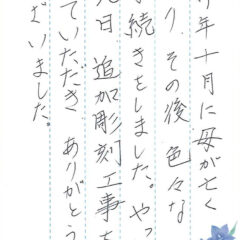 年十月に母が亡く
り、その後 色々な
続きをしました。やっ
日 追加彫刻工事を
ていただき ありがとう
ざいました。